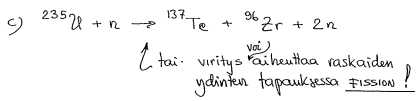 c) ²³⁵U + n → ¹³⁷Te + ⁹⁶Zr + 2n
tai. viritys voi aiheuttaa raskaiden
ydinten tapauksessa FISSION !